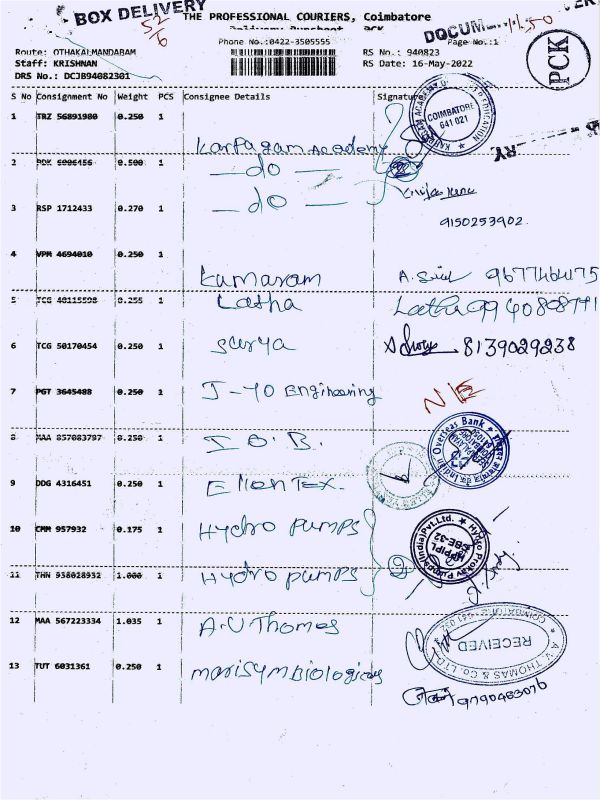 BOX DELIVERY
52/6
THE PROFESSIONAL COURIERS, Coimbatore
Delivery Runsheet PCK
DOCUM
Phone No.:0422-3505555
Page No.:1
PCK
Route: OTHAKALMANDABAM
RS No.: 940823
Staff: KRISHNAN
RS Date: 16-May-2022
DRS No.: DCJB94082301
S No Consignment No Weight PCS Consignee Details Signature
1 TRZ 56891980 0.250 1 Karpagam Academy
COIMBATORE 641 021
2 0.500 1 -do-
3 RSP 1712433 0.270 1 -do-
9150253902
4 VPM 4694010 0.250 1 Kumaram A. 9677464175
5 TCG 40115598 0.255 1 Latha Latha
6 TCG 50170454 0.250 1 Surya 8139029238
7 PGT 3645488 0.250 1 J-40 Engineering N/E
8 MAA 857083797 0.250 1 I O B. Indian Overseas Bank
9 DDG 4316451 0.250 1 Ellen Tex.
10 CMM 957932 0.175 1 Hydro Pumps
11 THN 938028932 1.000 1 Hydro pumps
Hydro Prokav Pumps(India)Pvt.Ltd. HPPIPL CBE-32
12 MAA 567223334 1.035 1 A.V Thomas
A.V. THOMAS & CO. LTD. RECEIVED
13 TUT 6031361 0.250 1 marisymbiologicals
9790483076